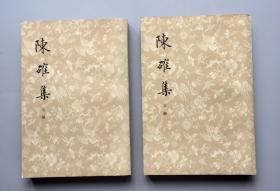 陳確集
陳確集